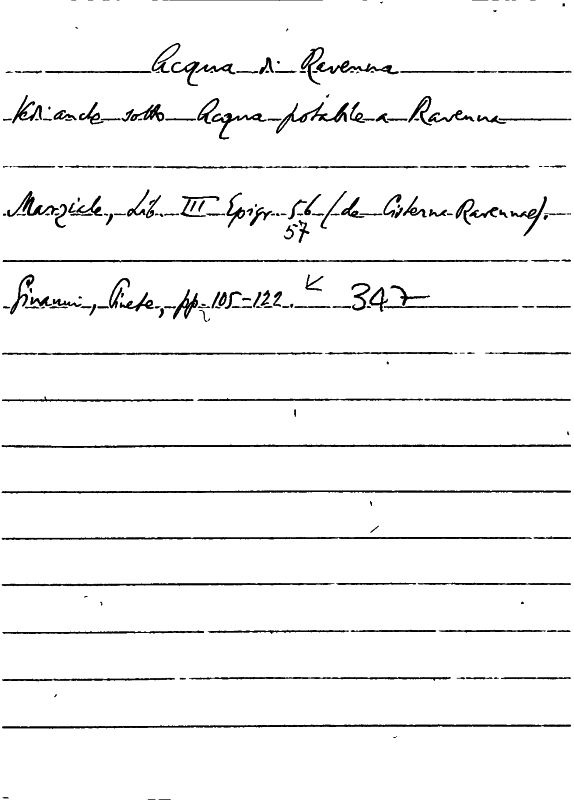 Acqua di Ravenna
Vedi anche sotto Acqua potabile a Ravenna
Marziale, Lib. III Epigr. 56 (de Cisterna Ravennae).
57
Ginanni, Pinete, pp. 105-122. 347